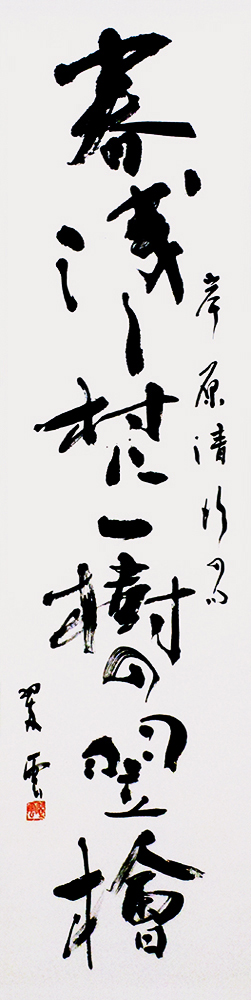 岸原清行の句
春浅し村に一樹の翌檜
翠雲